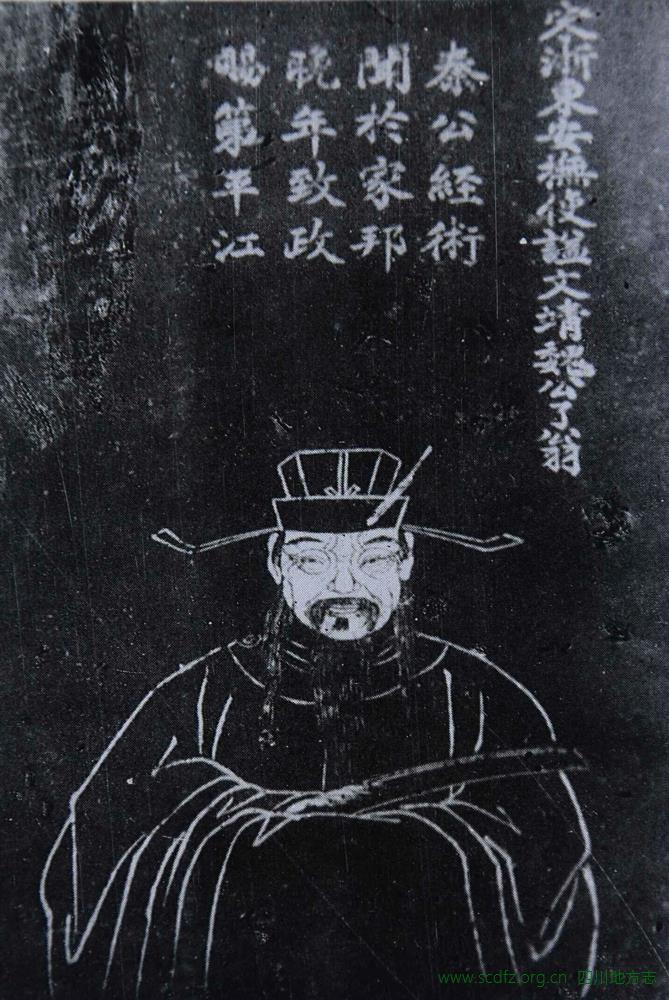 宋浙東安撫使諡文靖魏公了翁
秦公經術
聞於家邦
晚年致政
賜第平江
www.scdfz.org.cn 四川地方志